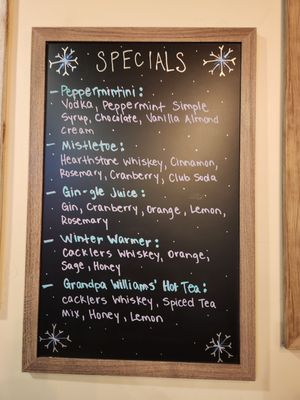 SPECIALS
- Peppermintini:
Vodka, Peppermint Simple
Syrup, Chocolate, Vanilla Almond
Cream
- Mistletoe:
Hearthstone Whiskey, Cinnamon,
Rosemary, Cranberry, Club Soda
- Gin-gle Juice:
Gin, Cranberry, Orange, Lemon,
Rosemary
- Winter Warmer:
Cacklers Whiskey, Orange,
Sage, Honey
- Grandpa Williams' Hot Tea:
Cacklers Whiskey, Spiced Tea
Mix, Honey, Lemon